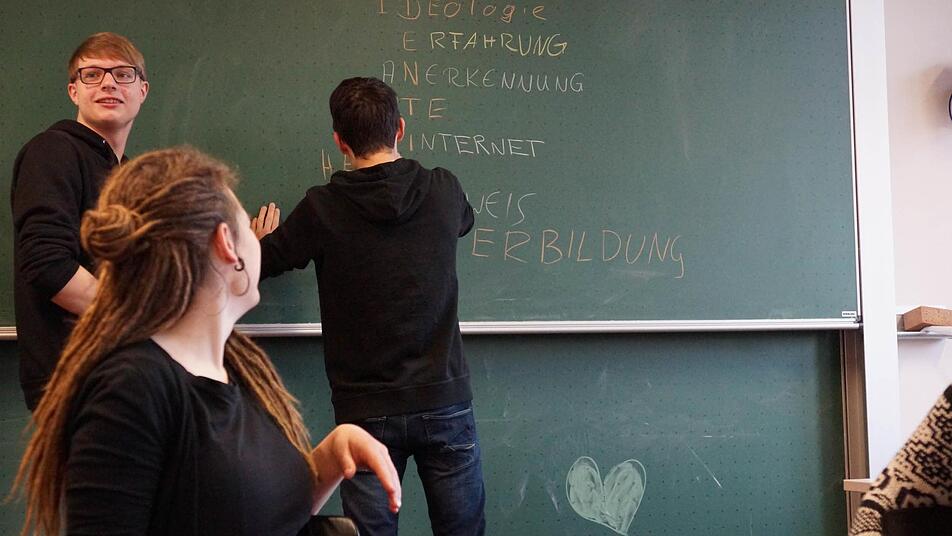 IDEOlogie
ERFAHRUNG
ANERKENNUNG
TE
INTERNET
WEIS
ERBILDUNG